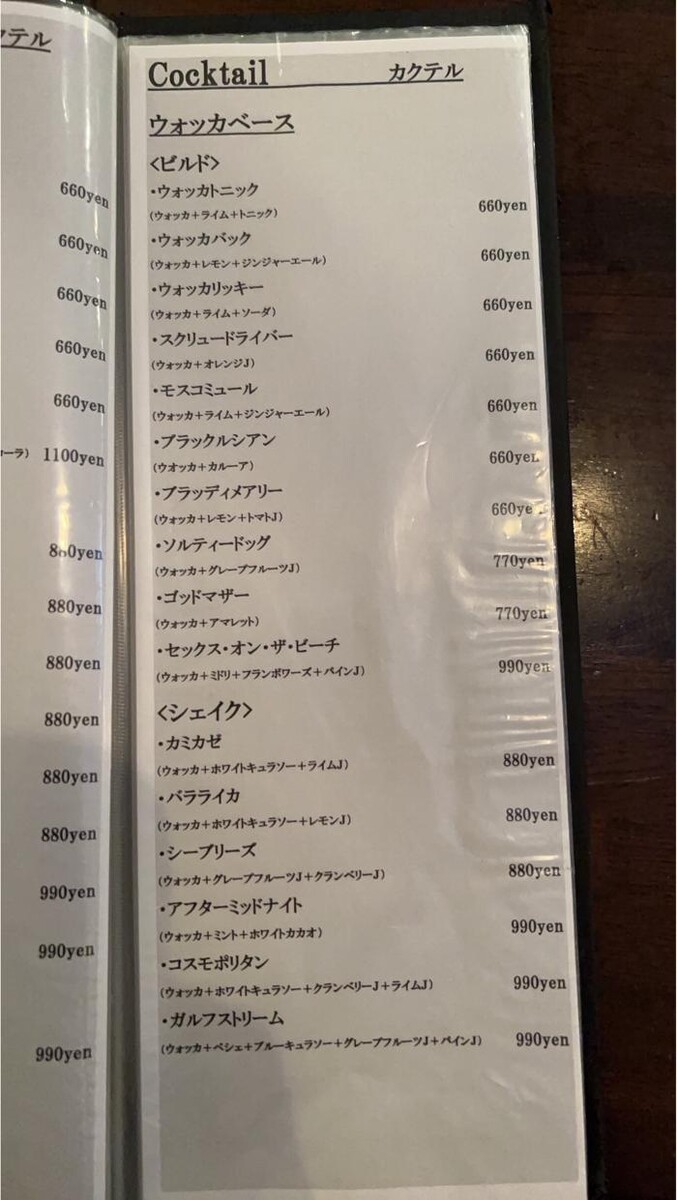 クテル
660yen
660yen
660yen
660yen
660yen
ーラ) 1100yen
880yen
880yen
880yen
880yen
880yen
880yen
990yen
990yen
990yen
Cocktail カクテル
ウォッカベース
<ビルド>
・ウォッカトニック
(ウォッカ+ライム+トニック) 660yen
・ウォッカバック
(ウォッカ+レモン+ジンジャーエール) 660yen
・ウォッカリッキー
(ウォッカ+ライム+ソーダ) 660yen
・スクリュードライバー
(ウォッカ+オレンジJ) 660yen
・モスコミュール
(ウォッカ+ライム+ジンジャーエール) 660yen
・ブラックルシアン
(ウオッカ+カルーア) 660yen
・ブラッディメアリー
(ウォッカ+レモン+トマトJ) 660yen
・ソルティードッグ
(ウォッカ+グレープフルーツJ) 770yen
・ゴッドマザー
(ウォッカ+アマレット) 770yen
・セックス・オン・ザ・ビーチ
(ウォッカ+ミドリ+フランボワーズ+パインJ) 990yen
<シェイク>
・カミカゼ
(ウォッカ+ホワイトキュラソー+ライムJ) 880yen
・バラライカ
(ウォッカ+ホワイトキュラソー+レモンJ) 880yen
・シーブリーズ
(ウォッカ+グレープフルーツJ+クランベリーJ) 880yen
・アフターミッドナイト
(ウォッカ+ミント+ホワイトカカオ) 990yen
・コスモポリタン
(ウォッカ+ホワイトキュラソー+クランベリーJ+ライムJ) 990yen
・ガルフストリーム
(ウォッカ+ペシェ+ブルーキュラソー+グレープフルーツJ+パインJ) 990yen